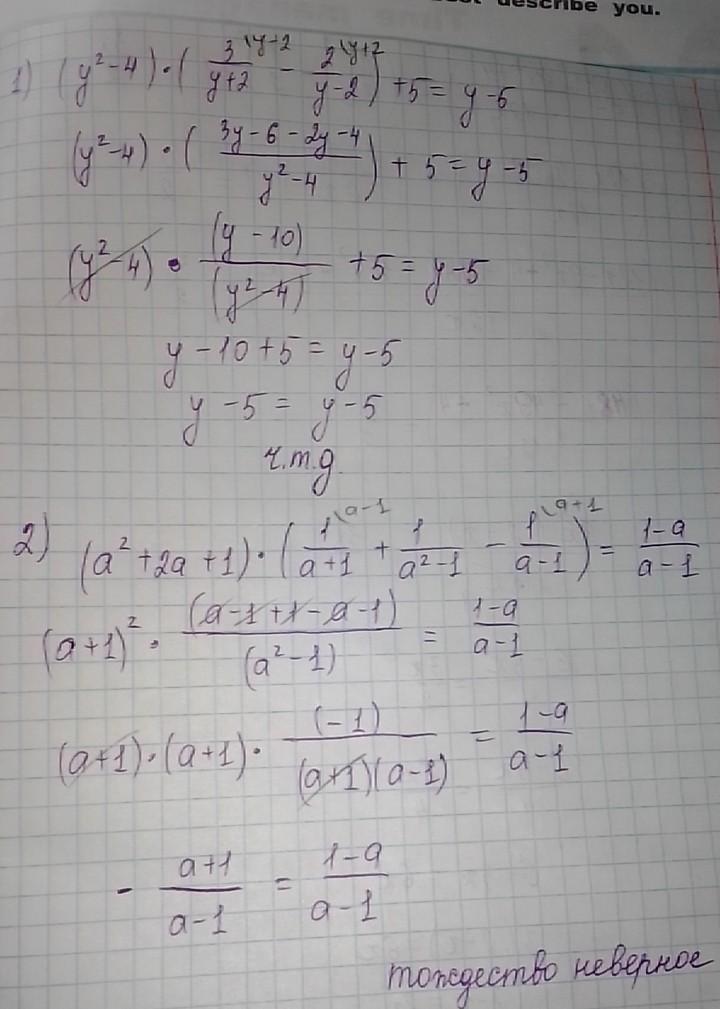 describe you.
1) (y²-4)·(3/(y+2) \y+2 - 2/(y-2) \y+2) +5 = y-5
(y²-4)·((3y-6-2y-4)/(y²-4)) + 5 = y-5
(y²-4)·(y-10)/(y²-4) +5 = y-5
y-10+5 = y-5
y-5 = y-5
ч.т.д.
2) (a²+2a+1)·(1/(a+1) \a-1 + 1/(a²-1) - 1/(a-1) \a+1) = (1-a)/(a-1)
(a+1)²·(a-1+1-a-1)/(a²-1) = (1-a)/(a-1)
(a+1)·(a+1)·(-1)/((a+1)(a-1)) = (1-a)/(a-1)
-(a+1)/(a-1) = (1-a)/(a-1)
тождество неверное